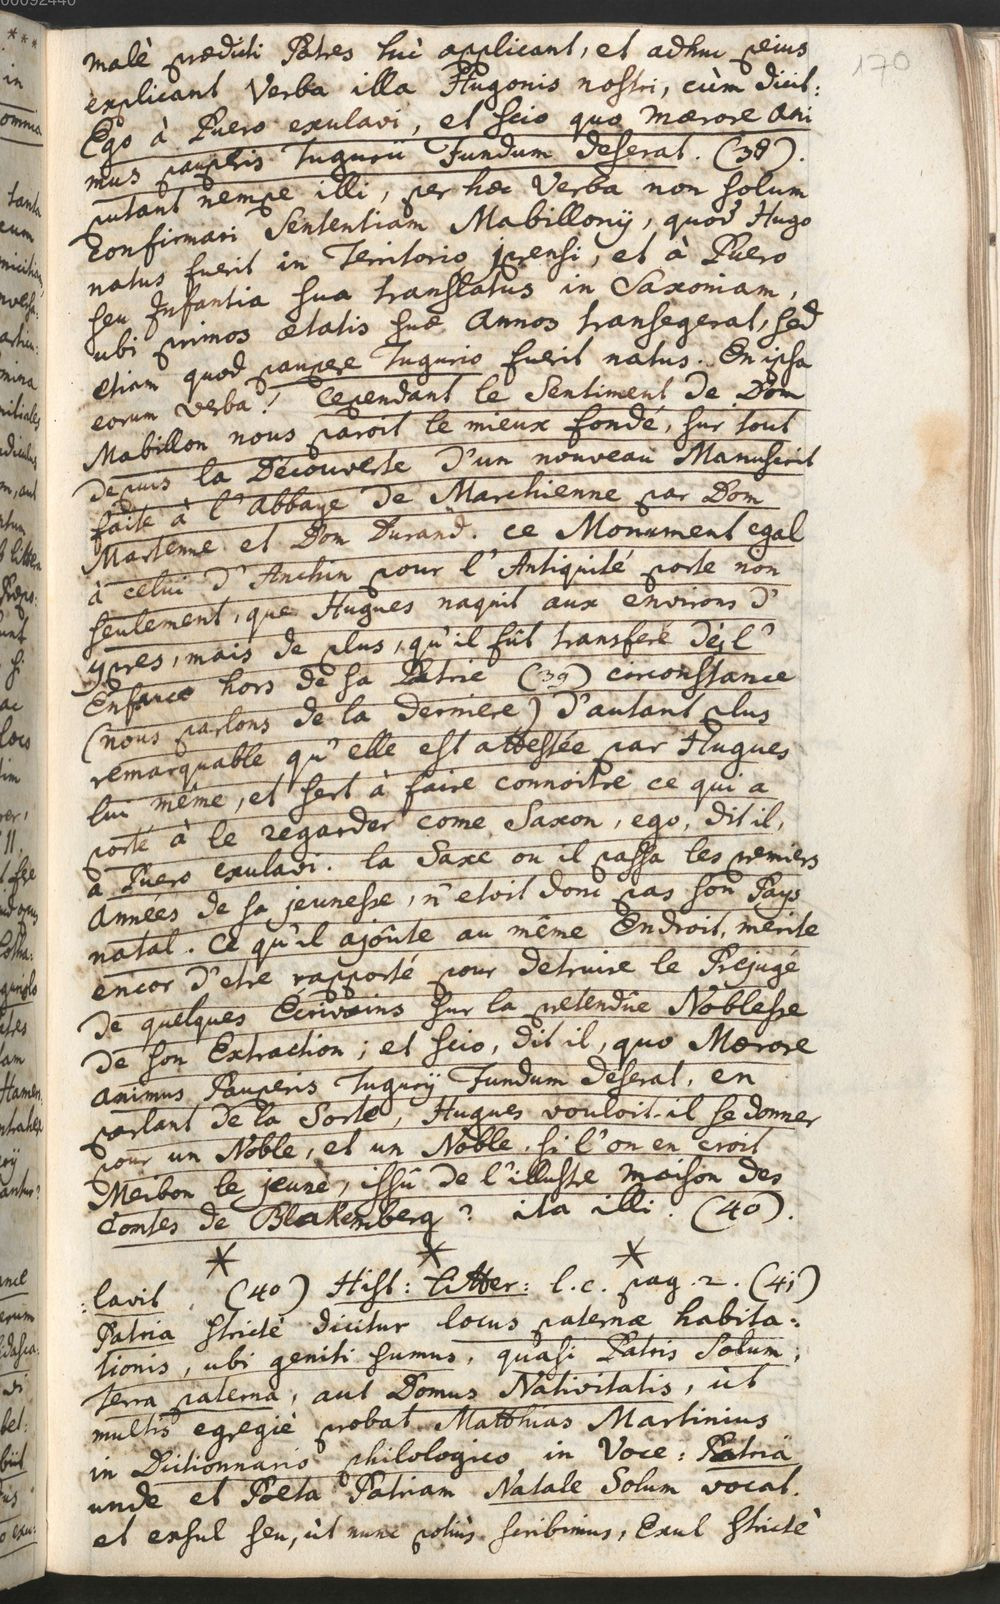 170
malè praedicti Patres huc applicant, et adhuc pejus
explicant Verba illa Hugonis nostri, cùm dicit:
Ego à Puero exulavi, et scio quo maerore Ani
mus pauperis Tugurii Fundum deserat. (38).
putant nempe illi, per haec Verba non solum
confirmari Sententiam Mabillonij, quod Hugo
natus fuerit in Territorio jprensi, et à Puero
seu Infantia sua translatus in Saxoniam,
ubi primos aetatis suae Annos transegerat, sed
etiam quod paupere Tugurio fuerit natus. En ipsa
eorum verba! Cependant le Sentiment de Dom
Mabillon nous paroit le mieux fondé, sur tout
depuis la Découverte d'un nouveau Manuscrit
faite à l'Abbaye de Marchienne par Dom
Martenne et Dom Durand. ce Monument egal
à celui d'Anchin pour l'Antiquité porte non
seulement, que Hugues naquit aux environs d'
ypres, mais de plus, qu'il fût transferé dès l'
Enfance hors de sa Patrie (39) circonstance
(nous parlons de la derniere) d'autant plus
remarquable qu'elle est attestée par Hugues
lui même, et sert à faire connoitre ce qui a
porté à le regarder come Saxon, ego, dit il,
à Puero exulavi. la Saxe ou il passa les premiers
Années de sa jeunesse, n'etoit donc pas son Pays
natal. Ce qu'il ajôute au même Endroit, mérite
encor d'etre rapporté pour detruire le Prejugé
de quelques Ecrivains sur la pretendûe Noblesse
de son Extraction; et scio, dit il, quo Maerore
animus Pauperis Tugurij Fundum deserat, en
parlant de la Sorte, Hugues vouloit-il se donner
pour un Noble, et un Noble, si l'on en croit
Meibon le jeune, issû de l'illustre maison des
Comtes de Blakemberg? ita illi. (40).
* * *
:lavit. (40) Hist: Litter: l.c. pag. 2. (41)
Patria strictè dicitur locus paternae habita:
tionis, ubi geniti sumus, quasi Patris Solum,
terra paterna, aut Domus Nativitatis, ùt
multis egregiè probat Matthias Martinius
in Dictionnario philologico in Voce: Patria
unde et Poeta Patriam Natale Solum vocat.
et exsul seu, ùt nunc potiùs scribimus, Exul strictè